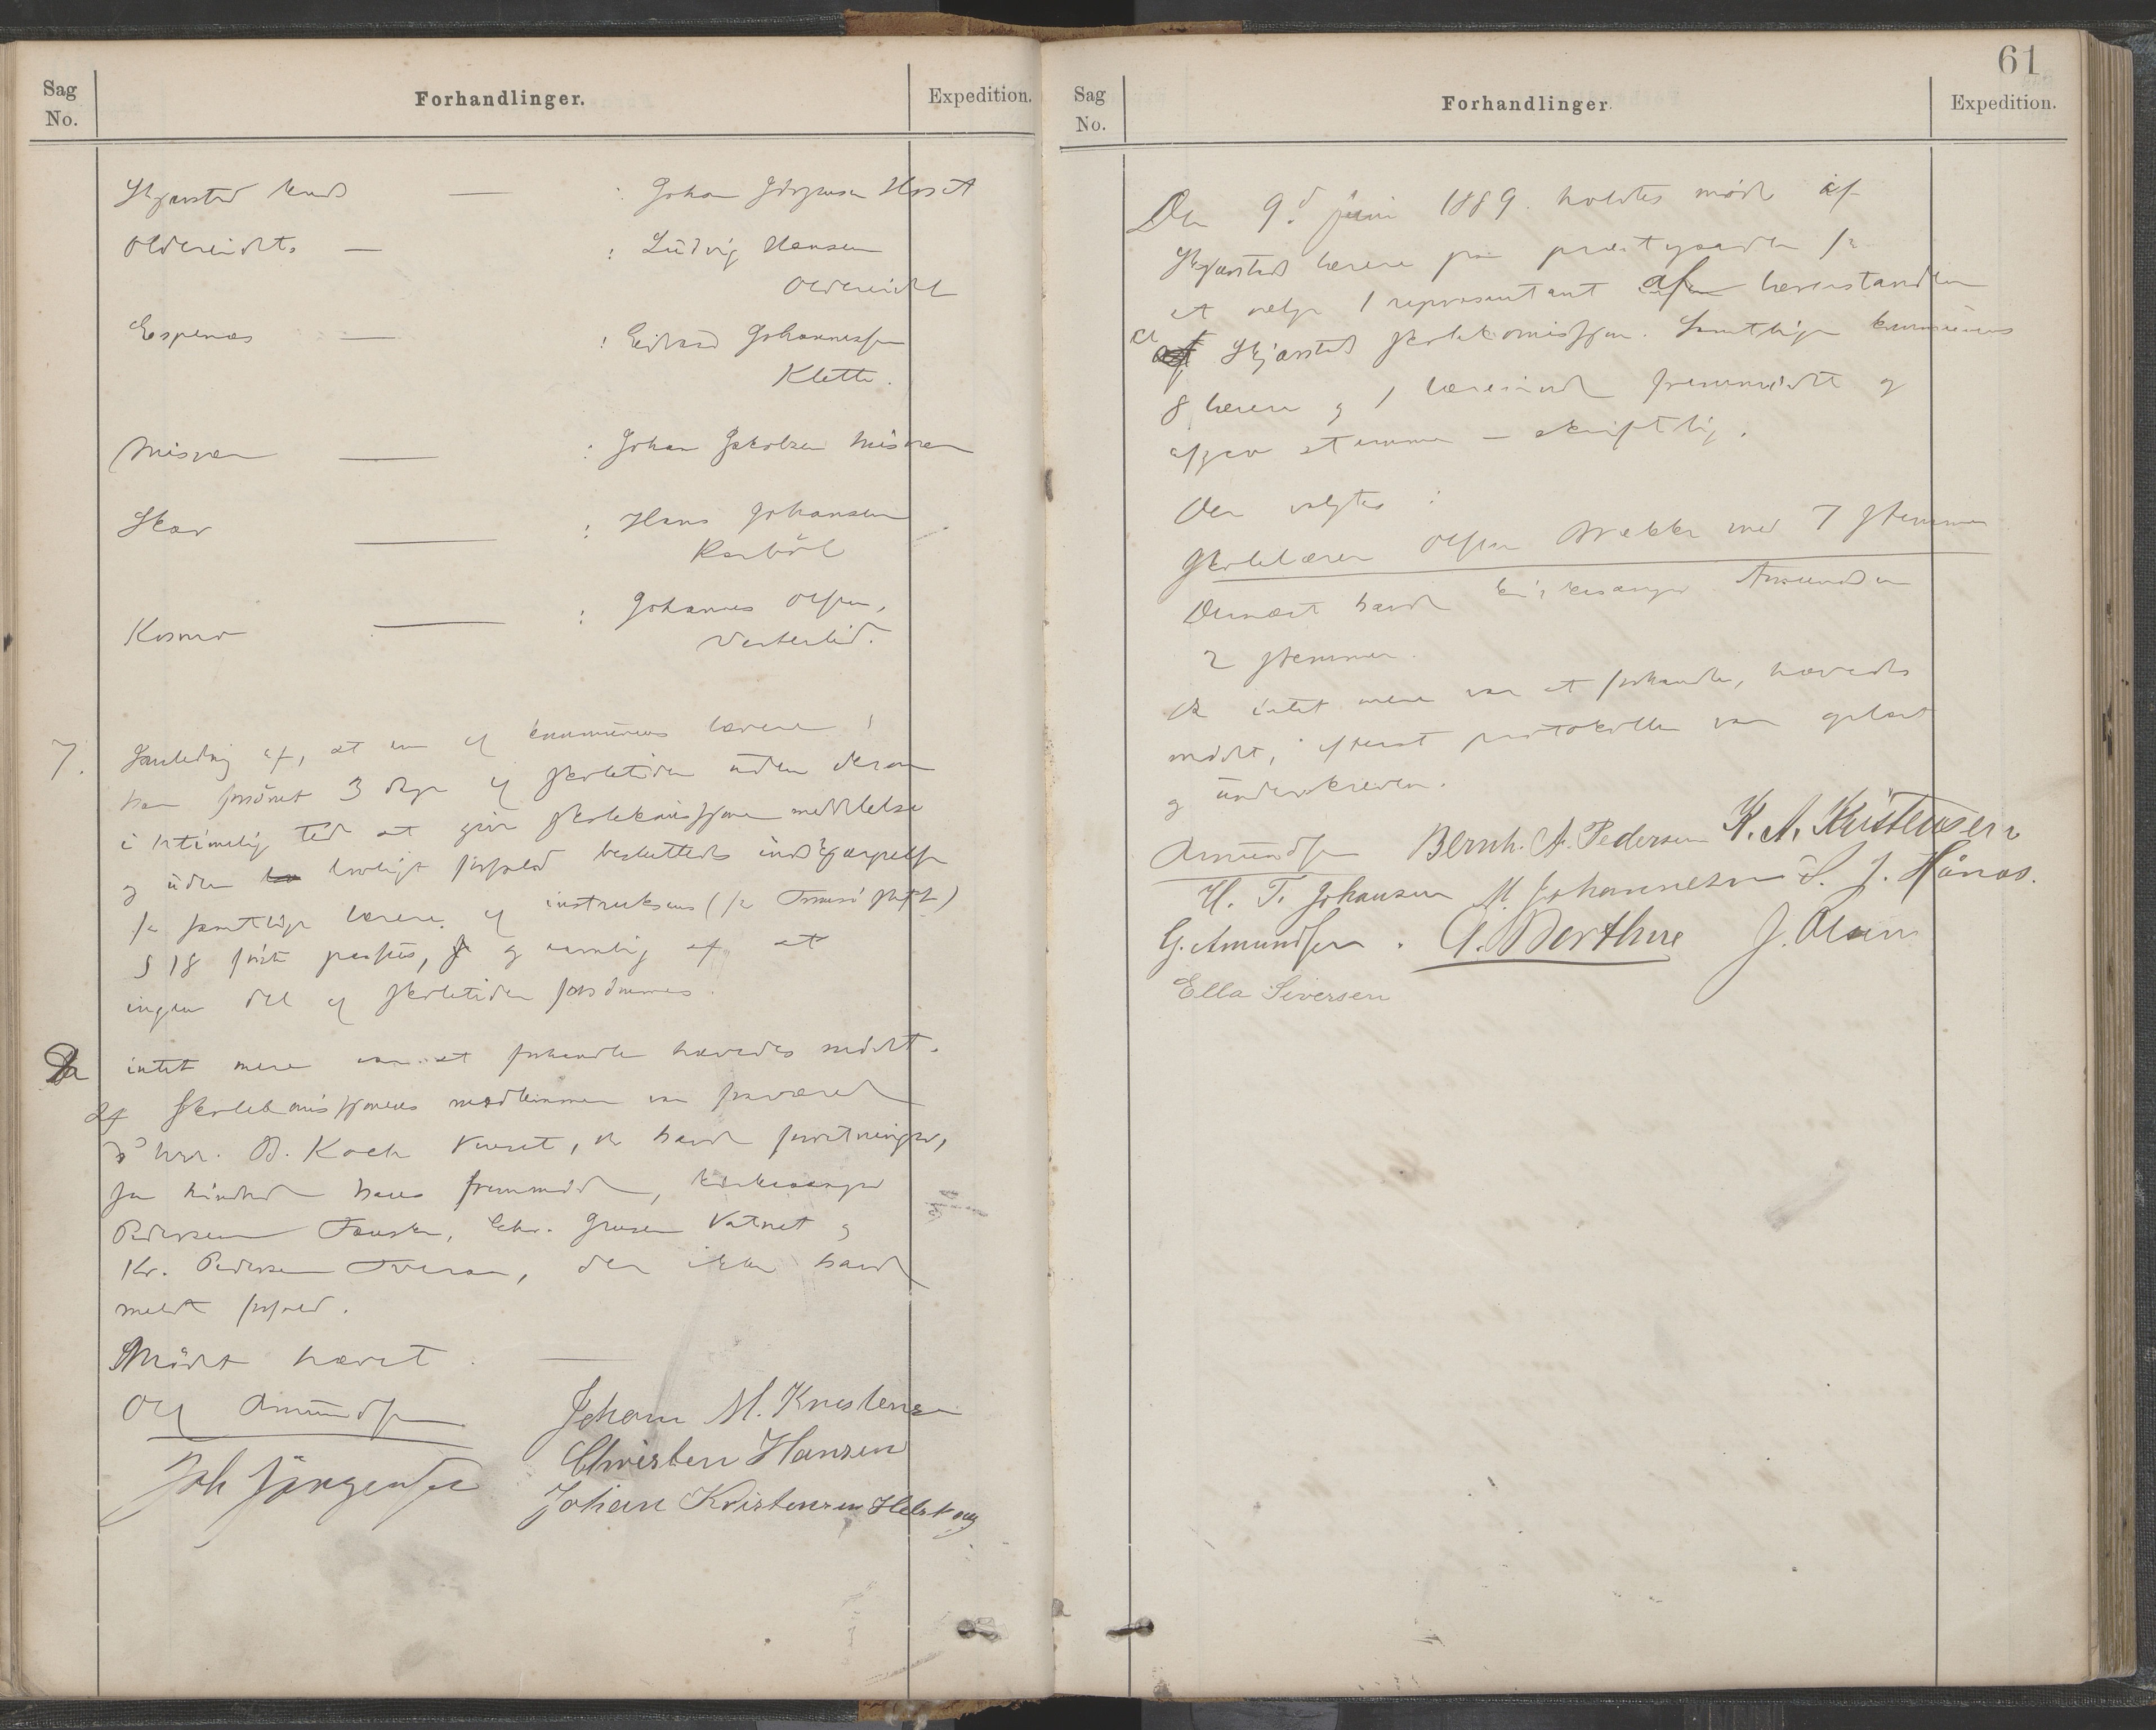 Sag
No.
Forhandlinger.
Expedition.
Skjærstad kreds — : Johan Jörgensen Hoset
Oldereidets — : Ludvig Hansen
Oldereidet
Espenæs — : Edvard Johannessen
Klette.
Misvær — : Johan Jakobsen Misvær
Skar — : Hans Johansen
Karböl
Kosmo — : Johannes Olsen,
Vesterlid.
7. I anledning af, at en af kommunens lærere
har forsömt 3 dage af skoletiden uden derom
i betimelig tid at give skolekomissjonen meddelelse
og uden lovligt forfald besluttedes indskjærpelse
for samtlige lærere af instruksens (for Tromsö stift)
§ 18 förste passus, og navnlig af at
ingen del af skoletiden forsömmes.
Da intet mere var at forhandle hævedes mödet.
Af skolekomissjonens medlemmer var fraværende
hrr. B. Koch , der havde forretninger,
som hindred hans fremmöde, kirkesanger
Pedersen Fauske, Chr. Jensen Vatnet og
Kr. Pedersen Tveraa, der ikke havde
meldt forfald.
Mödet hævet. —
Ole Amundsen
Johan M. Kristensen
Christen Hansen
Joh Jörgensen
Johan Kristensen Helskog
61
Sag
No.
Forhandlinger.
Expedition.
Den 9d juni 1889 holdtes möde af
Skjærstads lærere på præstegaarden for
at velge 1 representant af lærerstanden
til Skjærstad skolekomissjon. Samtlige kommunens
8 lærere og 1 lærerinde fremmödte og
afgav stemme – skriftlig.
Der valgtes :
Skolelærer Olsen med 7 stemmer
Dernæst havde kirkesanger Amundsen
2 stemmer.
Da intet mere var at forhandle, hævedes
mödet, efterat protokollen var oplæst
og underskreven.
Amundsen Bernh. A. Pedersen K. A. Kristensen
H. T. Johansen M. Johannesen S. J. Hånæs.
G. Amundsen. J. Olsen
Ella Seversen